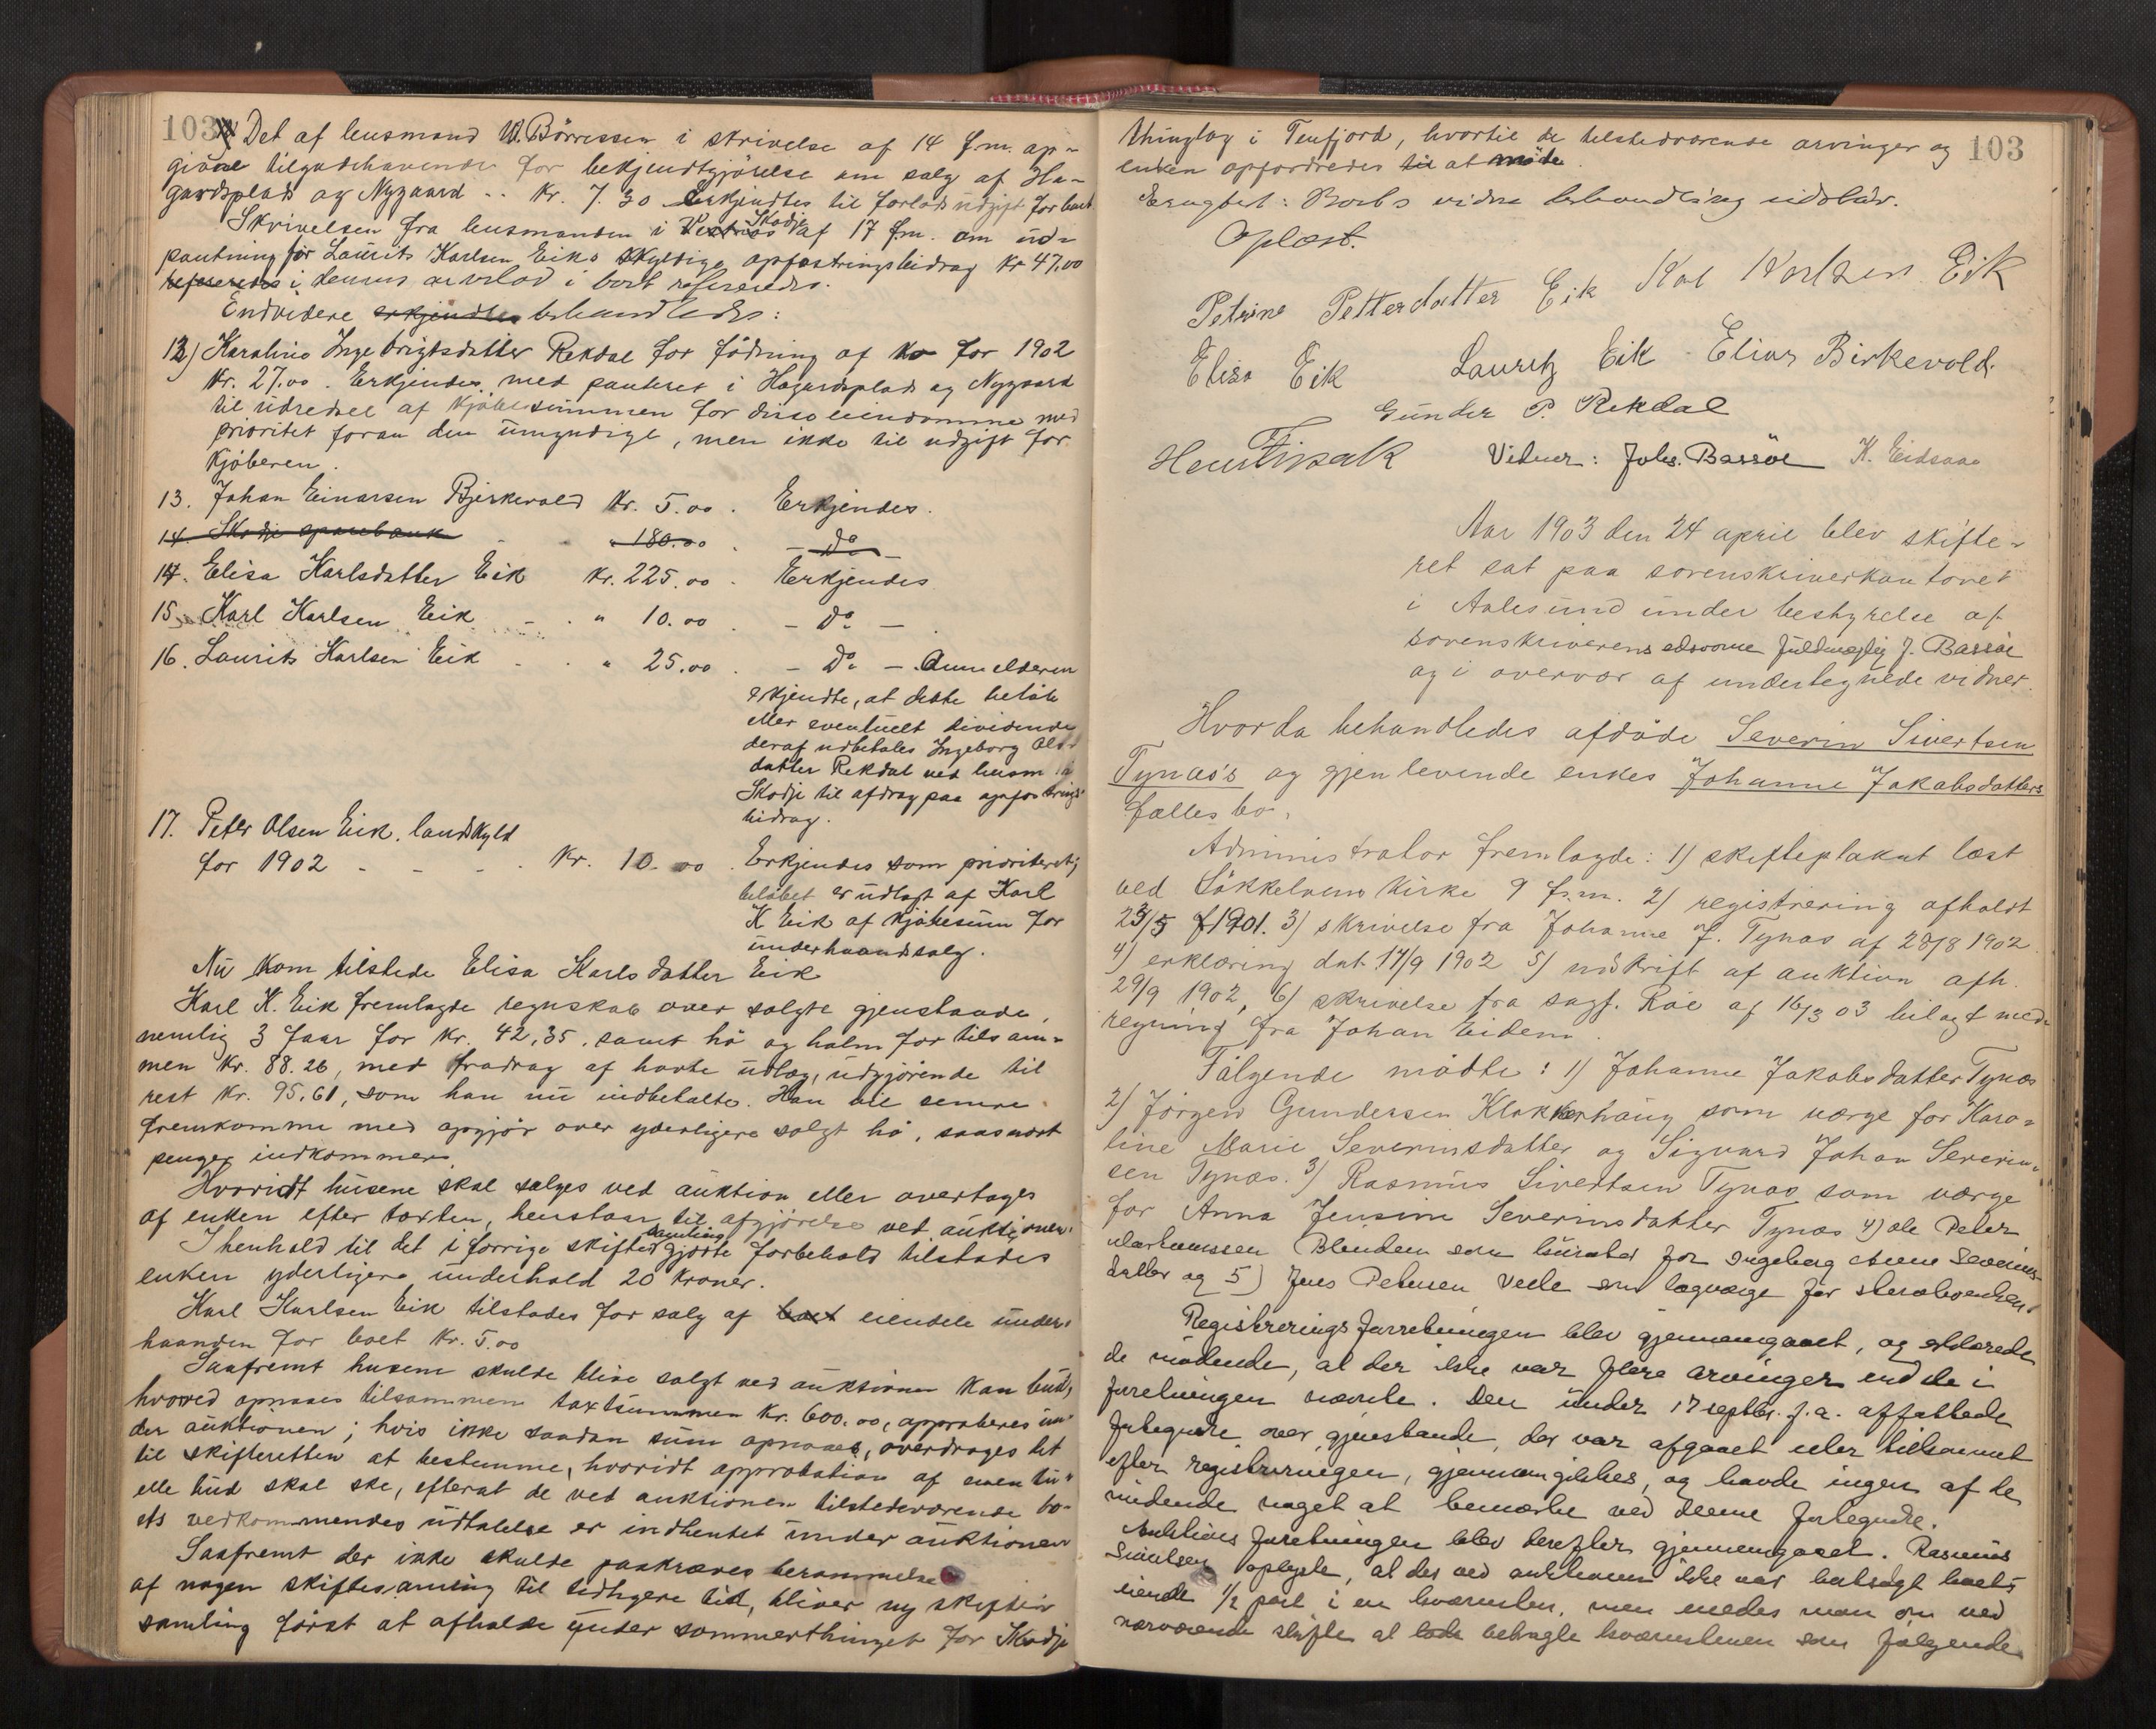 103
Det af lensmand W. Börressen i skrivelse af 14 f.m. op-
givne tilgodehavende for bekjendtgjörelse om salg af Ha-
gardsplads og Nygaard .. Kr. 7.30 Erkjendtes til forlods udgift for boet
Skrivelsen fra lensmanden i Skodje af 17 f.m. om ud-
pantning för Laurits Karlsen Eiks skyldige opfostringsbidrag Kr 47.00
i dennes arvelod i boet refereredes.
Endvidere erkjendtes behandledes:
12) Karoline Ingebrigtsdatter Rekdal for födning af ko for 1902
Kr. 27.00. Erkjendes med panteret i Hagardsplads og Nygaard
til udredsel af kjöbesummen for disse eiendomme med
prioritet foran den umyndige, men ikke til udgift for
kjöberen.
13. Johan Einarsen Bjerkevold Kr. 5.00. Erkjendes.
14. Skodje sparebank " 180.00 - do -
14. Elisa Karlsdatter Eik Kr. 225.00. Erkjendes
15. Karl Karlsen Eik - . " 10.00. - do -
16. Laurits Karlsen Eik . . " 25.00. - do - . Anmelderen
erkjendte, at dette belöb
eller eventuelt dividende
deraf udbetales Ingeborg Ols-
datter Rekdal ved lensm. i
Skodje til afdrag paa opfostrings-
bidrag.
17. Peter Olsen Eik, landskyld
for 1902 - - - . Kr. 10.00. Erkjendes som prioriteret;
belöbet er udlagt af Karl
K Eik af kjöbesum for
underhaandsalg.
Nu kom tilstede Elisa Karlsdatter Eik
Karl K. Eik fremlagde regnskab over solgte gjenstande,
nemlig 3 faar for Kr. 42,35, samt hö og halm for tilsam-
men Kr. 88.26, med fradrag af havte udlæg, udgjörende til
rest Kr. 95.61, som han nu indbetalte. Han vil senere
fremkomme med opgjör over yderligere solgt hö, saasnart
penger indkommer.
Hvorvidt husene skal sælges ved auktion eller overtages
af enken efter taxten, henstaar til afgjörelse ved auktionen.
I henhold til det i forrige skiftesamling gjorte forbehold tilstodes
enken yderligere underhold 20 Kroner.
Karl Karlsen Eik tilstodes for salg af boet eiendele under-
haanden for boet Kr. 5.00
Saafremt husene skulde blive solgt ved auktionen kan bud,
hvorved opnaaes tilsammen taxtsummen Kr. 600.00, approberes un-
der auktionen; hvis ikke saadan sum opnaaes, overdrages det
til skifteretten at bestemme, hvorvidt approbation af eventu-
elle bud skal ske, efterat de ved auktionen tilstedeværende bo-
ets vedkommendes udtalelse er indhentet under auktionen
Saafremt der ikke skulde paakræves berammelse
af nogen skiftesamling til tidligere tid, bliver ny skifte-
samling först at afholde under sommerthinget for Skodje
103
thinglag i Tenfjord, hvortil de tilstedeværende arvinger og
enken opfordredes til at möde.
Eragtet: Boets videre behandling udstaar.
Oplæst.
Petrine Pettersdatter Eik Karl Karlsen Eik
Elisa Eik Lauritz Eik Elias Birkevold.
Gunder P. Rekdal
Vidner: Johs. Bassöe K. Eidsaae
Aar 1903 den 24 april blev skifte-
ret sat paa sorenskriverkontoret
i Aalesund under bestyrelse af
sorenskriverens edsvorne fuldmægtig J. Bassöe
og i overvær af undertegnede vidner.
Hvorda behandledes afdöde Severin Sivertsen
Tynæs's og gjenlevende enkes Johanne Jakobsdatters
fælles bo.
Administrator fremlagde: 1) skifteplakat læst
ved Sökkelvens kirke 9 f.m. 2) registrering afholdt
23/5 1901. 3) skrivelse fra Johanne J. Tynæs af 28/8 1902
4) erklæring dat. 17/9 1902 5) udskrift af auktion afh.
29/9 1902, 6) skrivelse fra sagf. Röe af 16/3 03 bilagt med
regning fra Johan Eidem.
Fölgende mödte: 1) Johanne Jakobsdatter Tynæs
2) Jörgen Gundersen Klokkerhaug som værge for Karo-
line Marie Severinsdatter og Sigvard Johan Severin-
sen Tynæs. 3) Rasmus Sivertsen Tynæs som værge
for Anna Jensine Severinsdatter Tynæs 4) Ole Peter
Blendem som kurator for Ingeborg Severins-
datter og 5) Jens Petersen Velle som lagværge for stervboenken.
Registreringsforretningen blev gjennemgaaet, og erklærede
de mödende, at der ikke var flere arvinger end de i
forretningen nævnte. Den under 17 septbr. f.a. affattede
fortegnelse over gjenstande, der var afgaaet eller tilkommet
efter registreringen, gjennemgikkes, og havde ingen af de
mödende noget at bemærke ved denne fortegnelse.
Auktions forretningen blev derefter gjennemgaaet. Rasmus
Sivertsen oplyste, at der ved auktionen ikke var boets
eiende 1/2 part i en kværnsten, men enedes man om ved
nærværende skifte at lade kværnstenen som fölgende